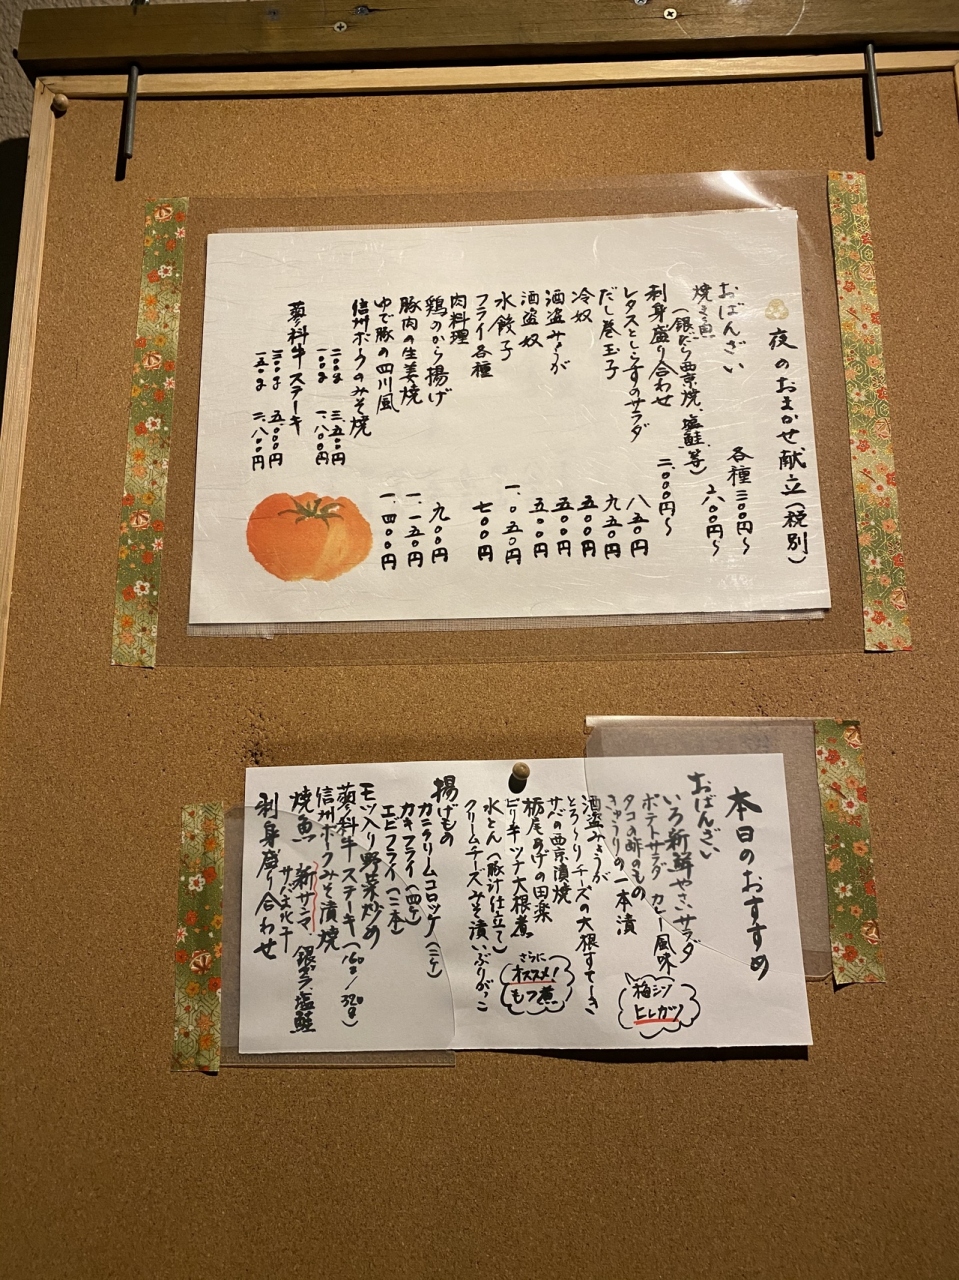 夜のおまかせ献立(税別)
おばんざい 各種三〇〇円〜
焼き魚 六〇〇円〜
(銀だら西京焼、塩鮭、等)
刺身盛り合わせ 二.〇〇〇円〜
レタスとしらすのサラダ 八五〇円
だし巻玉子 九五〇円
冷奴 五〇〇円
酒盗みょうが 五〇〇円
酒盗奴 五〇〇円
水餃子 一.〇五〇円
フライ各種 七〇〇円
肉料理
鶏のから揚げ 九〇〇円
豚肉の生姜焼 一.一五〇円
ゆで豚の四川風 一.四〇〇円
信州ポークのみそ焼
二〇〇g 三.五〇〇円
一〇〇g 一.八〇〇円
蓼科牛ステーキ
三〇〇g 五.〇〇〇円
一五〇g 二.八〇〇円
本日のおすすめ
おばんざい
いろ新鮮やさいサラダ
ポテトサラダ カレー風味
タコの酢のもの
きゅうりの一本漬
梅シソ
ヒレカツ
酒盗みょうが
とろ〜りチーズの大根すてーき
サバの西京漬焼
栃尾あげの田楽
ピリ辛ツナ大根煮
水とん(豚汁仕立て)
クリームチーズみそ漬いぶりがっこ
さらに
オススメ!
もつ煮
揚げもの
カニクリームコロッケ(二ケ)
カキフライ(四ケ)
エビフライ(二本)
モツ入り野菜炒め
蓼科牛ステーキ(160g/320g)
信州ポークみそ漬焼
焼魚 新サンマ、銀ダラ、塩鮭
サバ文化干
刺身盛り合わせ